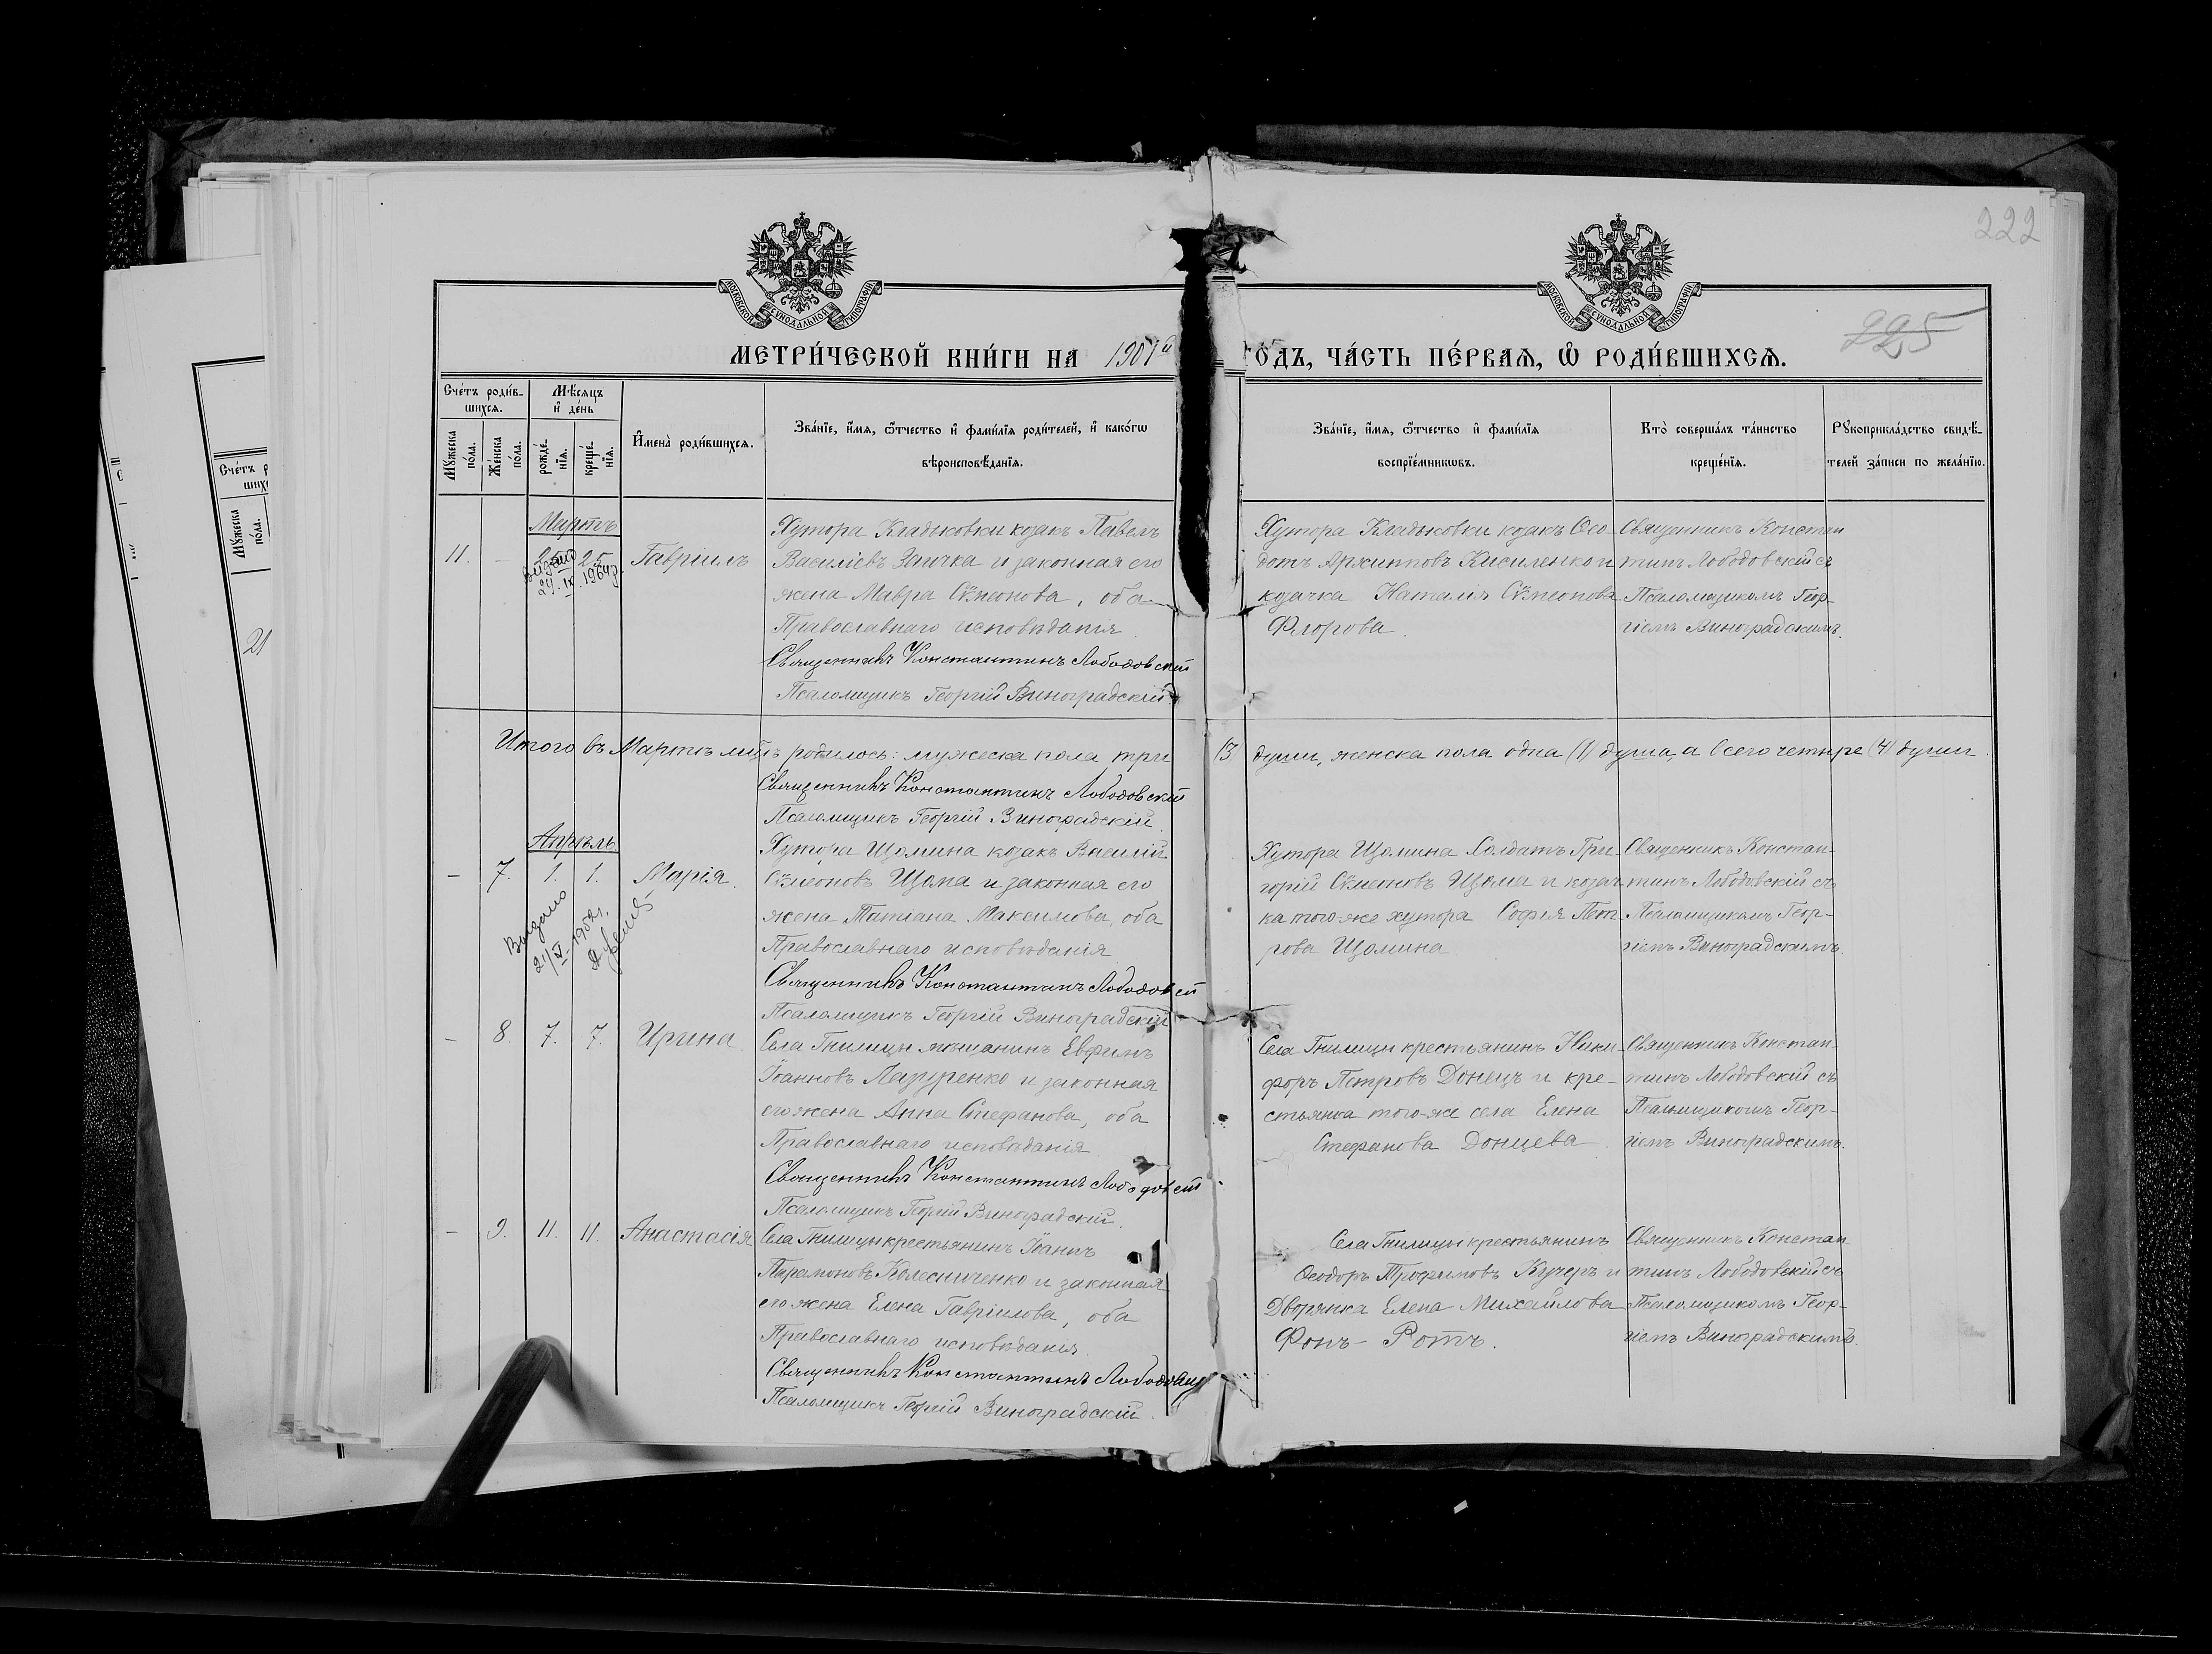 222
225
МОСКОВСКОЙ СѴНОДАЛЬНОЙ ТИПОГРАФІИ
МОСКОВСКОЙ СѴНОДАЛЬНОЙ ТИПОГРАФІИ
МЕТРИ́ЧЕСКОЙ КНИ́ГИ НА 1901й ГОДЪ, ЧА́СТЬ ПЕ́РВАЯ, Ѡ РОДИ́ВШИХСЯ.
Сче́тъ роди́в-
шихся.
Мѣ́сяцъ
и де́нь
Мꙋ́жеска
по́ла.
Же́нска
по́ла.
рожде́-
нїя.
креще́-
нїя.
И҆мена̀ роди́вшихся.
Зва́нїе, и҆́мя, ѻ҆́тчество и҆ фами́лїя роди́телей, и҆ како́гѡ
вѣроисповѣ́данїя.
Зва́нїе, и҆́мя, ѻ҆́тчество и҆ фами́лїя
воспрїе́мникѡвъ.
Кто̀ соверша́лъ та́инство
креще́нїя.
Рꙋкоприкла́дство свидѣ́-
телей за́писи по жела́нїю.
Мартъ
11. - 25 Гавріилъ
выдано
24.IX.1964г.
Хутора Кладьковки козакъ Павелъ
Василіевъ Заичка и законная его
жена Мавра Сѵмеонова, оба
Православнаго исповѣданія.
Священникъ Константинъ Лободовскій
Псаломщикъ Георгій Виноградскій
Хутора Кладьковки козакъ Ѳео-
дотъ Архиповъ Кисиленко и
козачка Наталія Сѵмеонова
Флорова.
Священникъ Констан
тинъ Лободовскій съ
Псаломщикомъ Геор-
гіемъ Виноградскимъ.
Итого въ Мартѣ мцѣ родилось: мужеска пола три (3) души, женска пола одна (1) душа, а всего четыре (4) души.
Священникъ Константинъ Лободовскій
Псаломщикъ Георгій Виноградскій.
Апрѣль
- 7. 1. 1. Марія.
Выдано
21/XI-1952г.
Хутора Щомина козакъ Василій
Сѵмеоновъ Щома и законная его
жена Татіана Максимова, оба
Православнаго исповѣданія
Священникъ Константинъ Лободовскій
Псаломщикъ Георгій Виноградскій
Хутора Щомина Солдатъ Гри-
горій Сѵмеоновъ Щома и козач
ка того-же хутора Софія Пет-
рова Щомина
Священникъ Констан-
тинъ Лободовскій съ
Псаломщикомъ Геор-
гіемъ Виноградскимъ
- 8. 7. 7. Ирина.
Села Гнилицы мѣщанинъ Евфимъ
Іоанновъ Лазуренко и законная
его жена Анна Стефанова, оба
Православнаго исповѣданія
Священникъ Константинъ Лободовскій
Псаломщикъ Георгій Виноградскій.
Села Гнилицы крестьянинъ Ники-
форъ Петровъ Донецъ и кре-
стьянка того-же села Елена
Стефанова Донцева.
Священникъ Констан-
тинъ Лободовскій съ
Псаломщикомъ Геор-
гіемъ Виноградскимъ.
- 9. 11. 11. Анастасія
Села Гнилицы крестьянинъ Іоаннъ
Парамоновъ Колесниченко и законная
его жена Елена Гавріилова, оба
Православнаго исповѣданія.
Священникъ Константинъ Лободовскій
Псаломщикъ Георгій Виноградскій.
Села Гнилицы крестьянинъ
Ѳеодоръ Трофимовъ Кучеръ и
Дворянка Елена Михайлова
Фонъ-Ротъ.
Священникъ Констан
тинъ Лободовскій съ
Псаломщикомъ Геор-
гіемъ Виноградскимъ.
Сче́тъ р
ших
Мꙋ́жеска
по́ла.
21